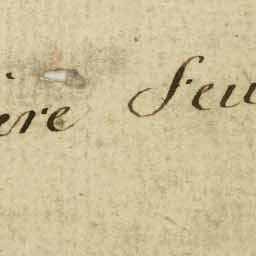 ère feu